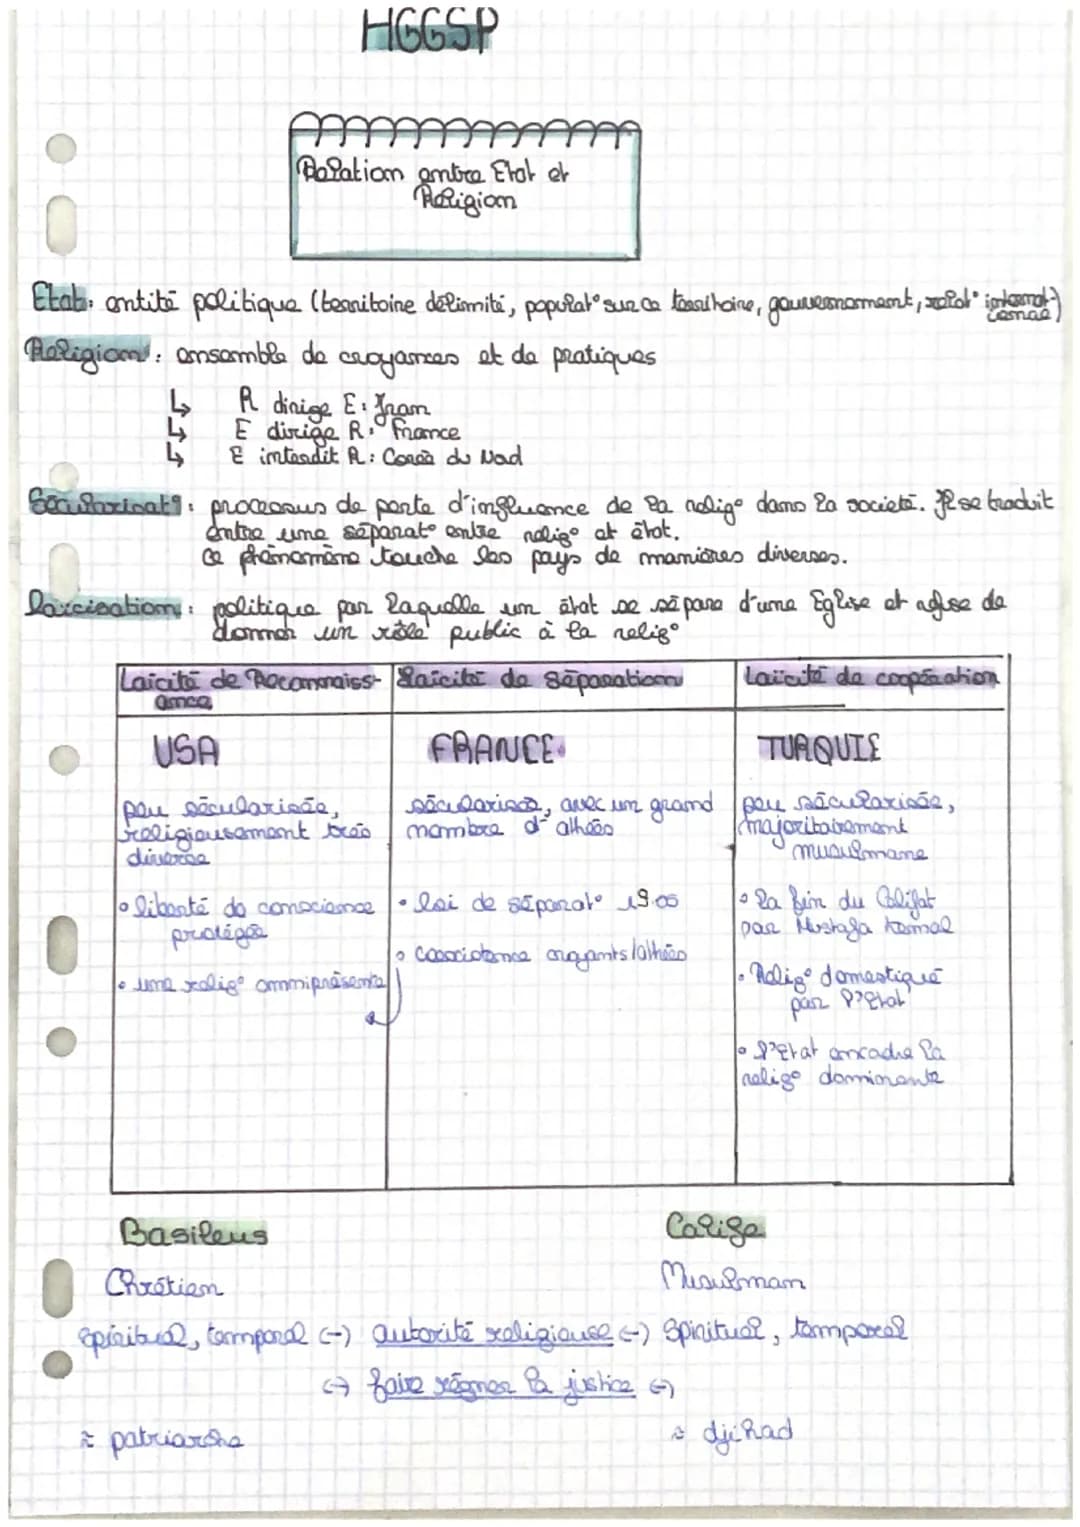 HGGSP
Relation entre Etat et
Religion
Etat: entité politique (territoire délimité, populat° sur ce territoire, gouvernement, relat° internationale)
Religion: ensemble de croyances et de pratiques
↳ R dirige E: Iran
↳ E dirige R: France
↳ E interdit R: Corée du Nad
Sécularisat°: processus de perte d'influence de la relig° dans la societé. Il se traduit
entre une séparat° entre relig° et état.
Ce phénomène touche les pays de manières diverses.
laïcisation: politique par laquelle un état se sépare d'une Eglise et refuse de
donner un rôle public à la relig°
Laïcité de Reconnaiss-
ance
Laïcité de Séparation
Laïcité de coopération
USA
FRANCE
TURQUIE
peu sécularisée,
religieusement très
diverse
sécularisée, avec un grand
nombre d'athées
peu sécularisée,
majoritairement
musulmane
• liberté de conscience
protégée
• une relig° omniprésente
• loi de séparat° 1905
• Coexistence croyants/athées
• la fin du Califat
par Mustafa Kemal
• Relig° domestiqué
par l'Etat
• l'Etat encadre la
relig° dominante
Basileus
Calife
Chrétien
Musulman
spirituel, temporel (-) autorité religieuse (-) Spirituel, temporel
(-) faire régner la justice (-)
≈ patriarche
≈ djihad